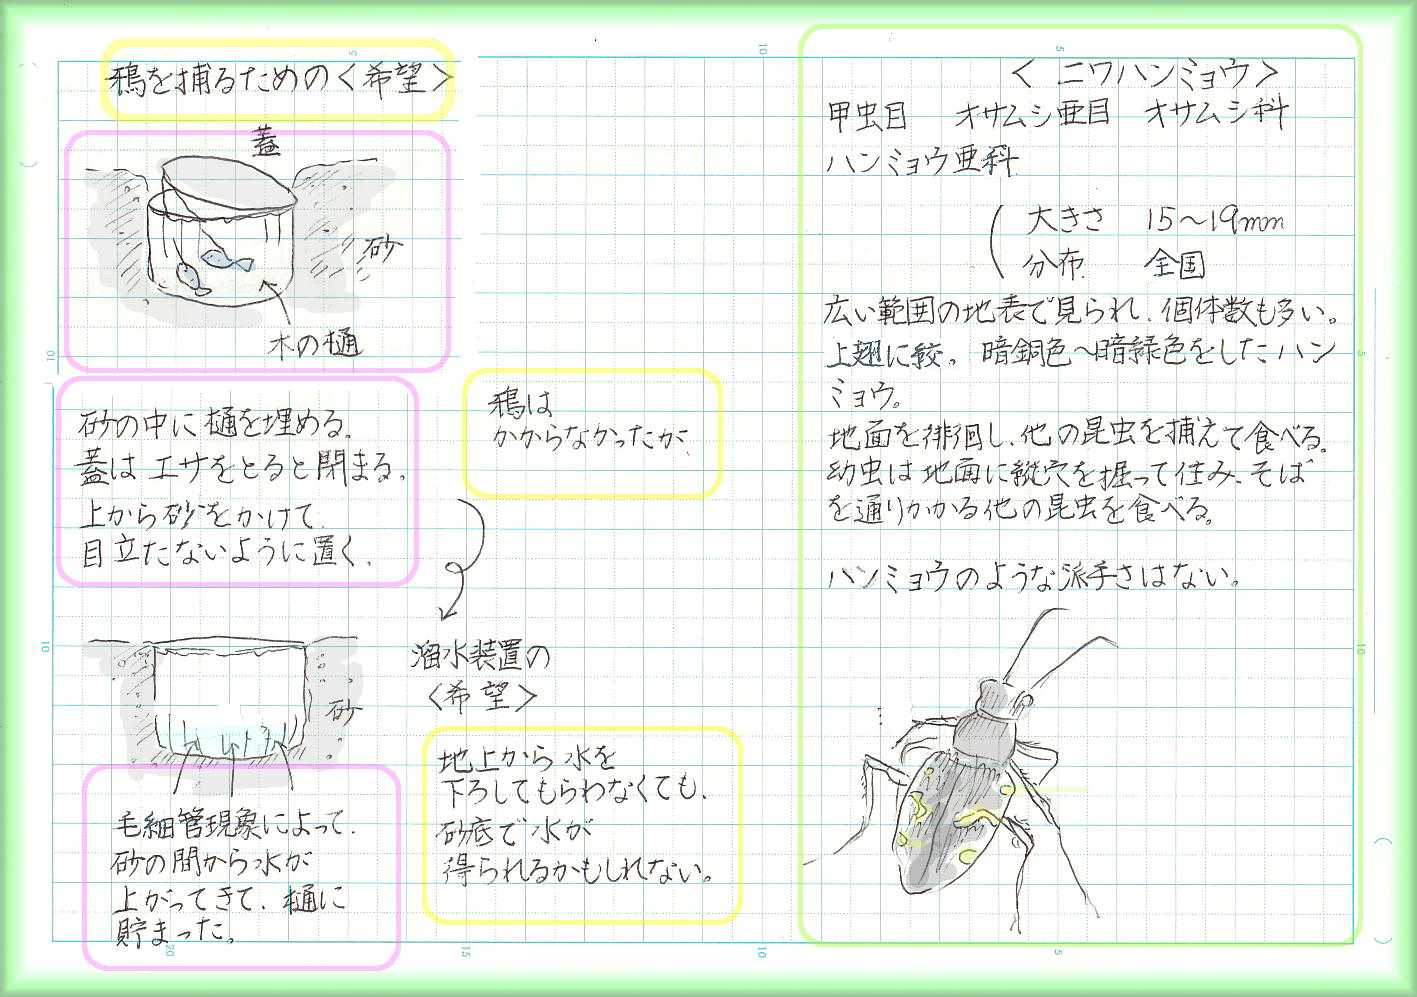 鴉を捕るための〈希望〉
蓋
砂
木の樋
砂の中に樋を埋める。
蓋はエサをとると閉まる。
上から砂をかけて、
目立たないように置く。
鴉は
かからなかったが、
溜水装置の
〈希望〉
砂
毛細管現象によって、
砂の間から水が
上がってきて、樋に
貯まった。
地上から水を
下ろしてもらわなくても、
砂底で水が
得られるかもしれない。
〈ニワハンミョウ〉
甲虫目 オサムシ亜目 オサムシ科
ハンミョウ亜科
大きさ 15～19mm
分布 全国
広い範囲の地表で見られ、個体数も多い。
上翅に紋。暗銅色～暗緑色をしたハン
ミョウ。
地面を徘徊し、他の昆虫を捕えて食べる。
幼虫は地面に縦穴を掘って住み、そば
を通りかかる他の昆虫を食べる。
ハンミョウのような派手さはない。
5
10
5
10
5
10
20
15
10
5